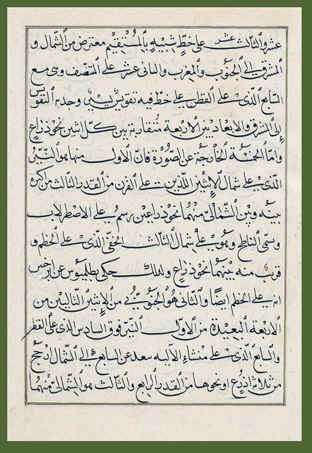 عشر والثالث عشر على خط شبيه بالمستقيم معترض من الشمال و
المشرق الى الجنوب والمغرب والثانى عشر على المنتصف وى مع
السابع الذى على القطب على خط فيه تقويس يسير وحدبة التقوس
الى المشرق والابعاد بين الاربعة متقاربة بين كل اثنين نحو ذراع
واما الخمسة الخارجة عن الصورة فان الاول منهما هو النير
الذى على شمال الاثنين اللذين على القرن من القدر الثالث من اكبره
بينه وبين الشمالى منهما نحو ذراعين يرسم على الاصطرلاب
وسمى الناطح وهو على شمال الثالث الخفى الذى على الخطم و
قرب منه بينهما نحو ذراع وكذلك حكى بطلميوس عن ابرخس
انه على الخطم ايضا والثانى هو الجنوبى من الاثنين التاليين من
الاربعة البعيدة من الاول النير فوق السادس الذى على القطن
والسابع الذى على منشاء الالية بعده عن السابع الى الشمال ارجح
من ثلاثة اذرع او نحوها من القدر الرابع والثالث هو الشمالى منهما